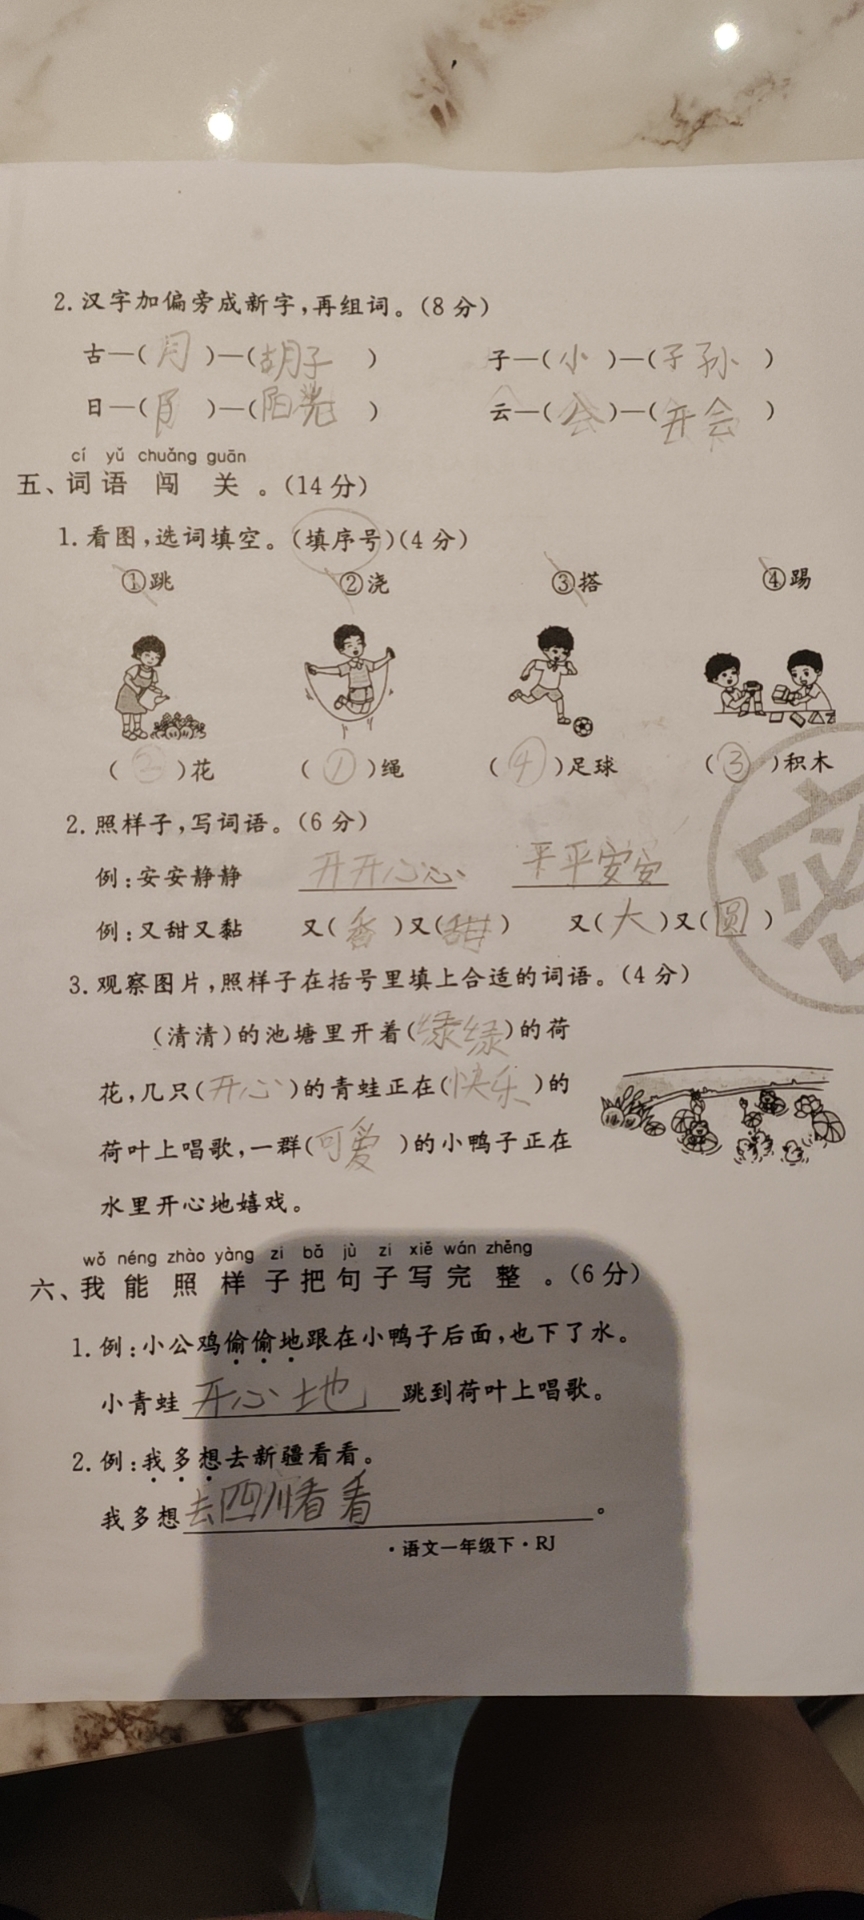 2.汉字加偏旁成新字,再组词。(8分)
古—(月)—(胡子)　子—(小)—(子孙)
日—(阝)—(阳光)　云—(会)—(开会)
cí yǔ chuǎng guān
五、词语闯关。(14分)
1.看图,选词填空。(填序号)(4分)
①跳　②浇　③搭　④踢
(②)花　(①)绳　(④)足球　(③)积木
2.照样子,写词语。(6分)
例:安安静静　开开心心　平平安安
例:又甜又黏　又(香)又(甜)　又(大)又(圆)
3.观察图片,照样子在括号里填上合适的词语。(4分)
(清清)的池塘里开着(绿绿)的荷
花,几只(开心)的青蛙正在(快乐)的
荷叶上唱歌,一群(可爱)的小鸭子正在
水里开心地嬉戏。
wǒ néng zhào yàng zi bǎ jù zi xiě wán zhěng
六、我能照样子把句子写完整。(6分)
1.例:小公鸡偷偷地跟在小鸭子后面,也下了水。
小青蛙开心地跳到荷叶上唱歌。
2.例:我多想去新疆看看。
我多想去四川看看。
·语文一年级下·RJ
密